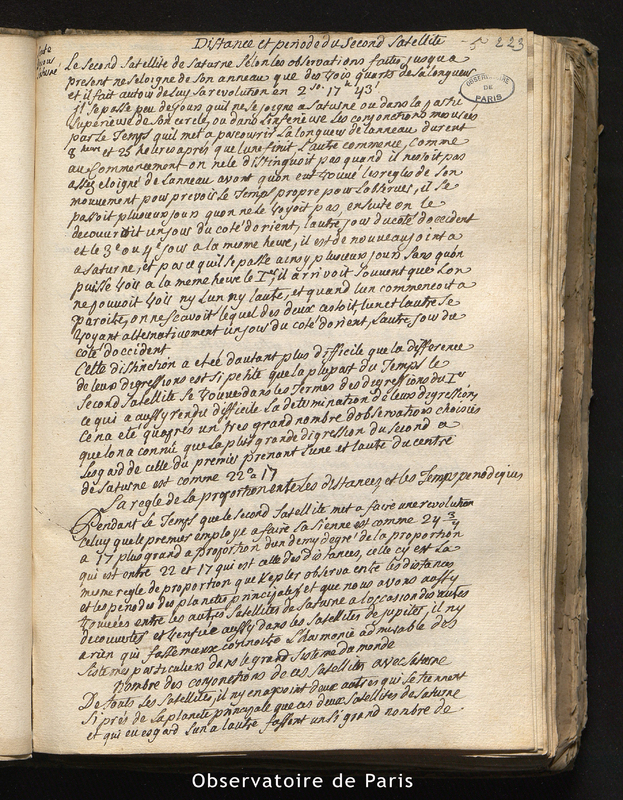 Distance et periode du Second Satellite
5 223
Le Second Satellite de Saturne Selon les observations faites jusqu'a
present ne seloigne de Son anneau que des trois quarts de sa longueur
et il fait autour de luy sa revolution en 2 jo. 17 h 43'
OBSERVATOIRE
DE
PARIS
Il Se passe peu de jours quil ne se joigne a Saturne ou dans la partie
Superieure de Son cercle, ou dans Linferieure Les conjonctions mesurées
par le Temps quil met a parcourir La longueur de lanneau durent
8 heur et 25 heures apres que lune finit Lautre commence, comme
au Commencement on ne le distinguoit pas quand il nestoit pas
assez eloigné de Lanneau avant quon eut trouvé les regles de Son
mouvement pour prevoir le Temps propre pour Lobserver, il Se
passoit plusieurs jours quon ne le voyoit pas, ensuite on le
decouvroit un jour du coté dorient, lautre jour du coté doccident
et le 3e ou 4e jour a la mesme heure, il est de nouveau joint a
a Saturne, et parce quil se passe ainsy plusieurs jours Sans quon
puisse voir a la meme heure le Ier il arrivoit Souvent que Lon
ne pouvoit voir ny Lun ny lautre, et quand lun commencoit a
paroitre, on ne scavoit lequel des deux cestoit lun et lautre Se
voyant alternativement un jour du coté dorient, Lautre jour du
coté doccident
Cette distinction a eté dautant plus difficile que la difference
de leurs digressions est Si petite que la plupart du Temps le
Second Satellite Se trouve dans les Termes des degressions du Ier
ce qui a aussy rendu difficile La determination de leurs digressions
Ce na ete quapres un tres grand nombre dobservations choisies
que lon a connu que La plus grande digression du Second a
Legard de celle du premier prenant Lune et lautre du centre
de Saturne est comme 22 a 17
La regle de la proportion entre Les distances, et les Temps periodiques
Pendant le Temps que le Second Satellite met a faire une revolution
Celuy que le premier employe a faire La Sienne est comme 24 3/4
a 17 plus grand a proportion dun demy degre de la proportion
qui est entre 22 et 17 qui est celle des distances, celle cy est La
mesme regle de proportion que Kepler observa entre les distances
et les periodes des planetes principales et que nous avons aussy
trouvées entre les autres Satellites de Saturne a loccasion des autres
decouvertes et aussy dans les Satellites de jupiter, il ny
a rien qui fasse mieux connoitre L'harmonie admirable des
Sistemes particuliers dans le grand Sisteme du monde
Nombre des conjonctions de ces Satellites avec Saturne
De touts Les Satellites, il ny en a point deux autres qui Se tiennent
Si prés de La planete principale que ces deux Satellites de Saturne
et qui eu esgard Lun a lautre fassent un si grand nombre de
Observatoire de Paris